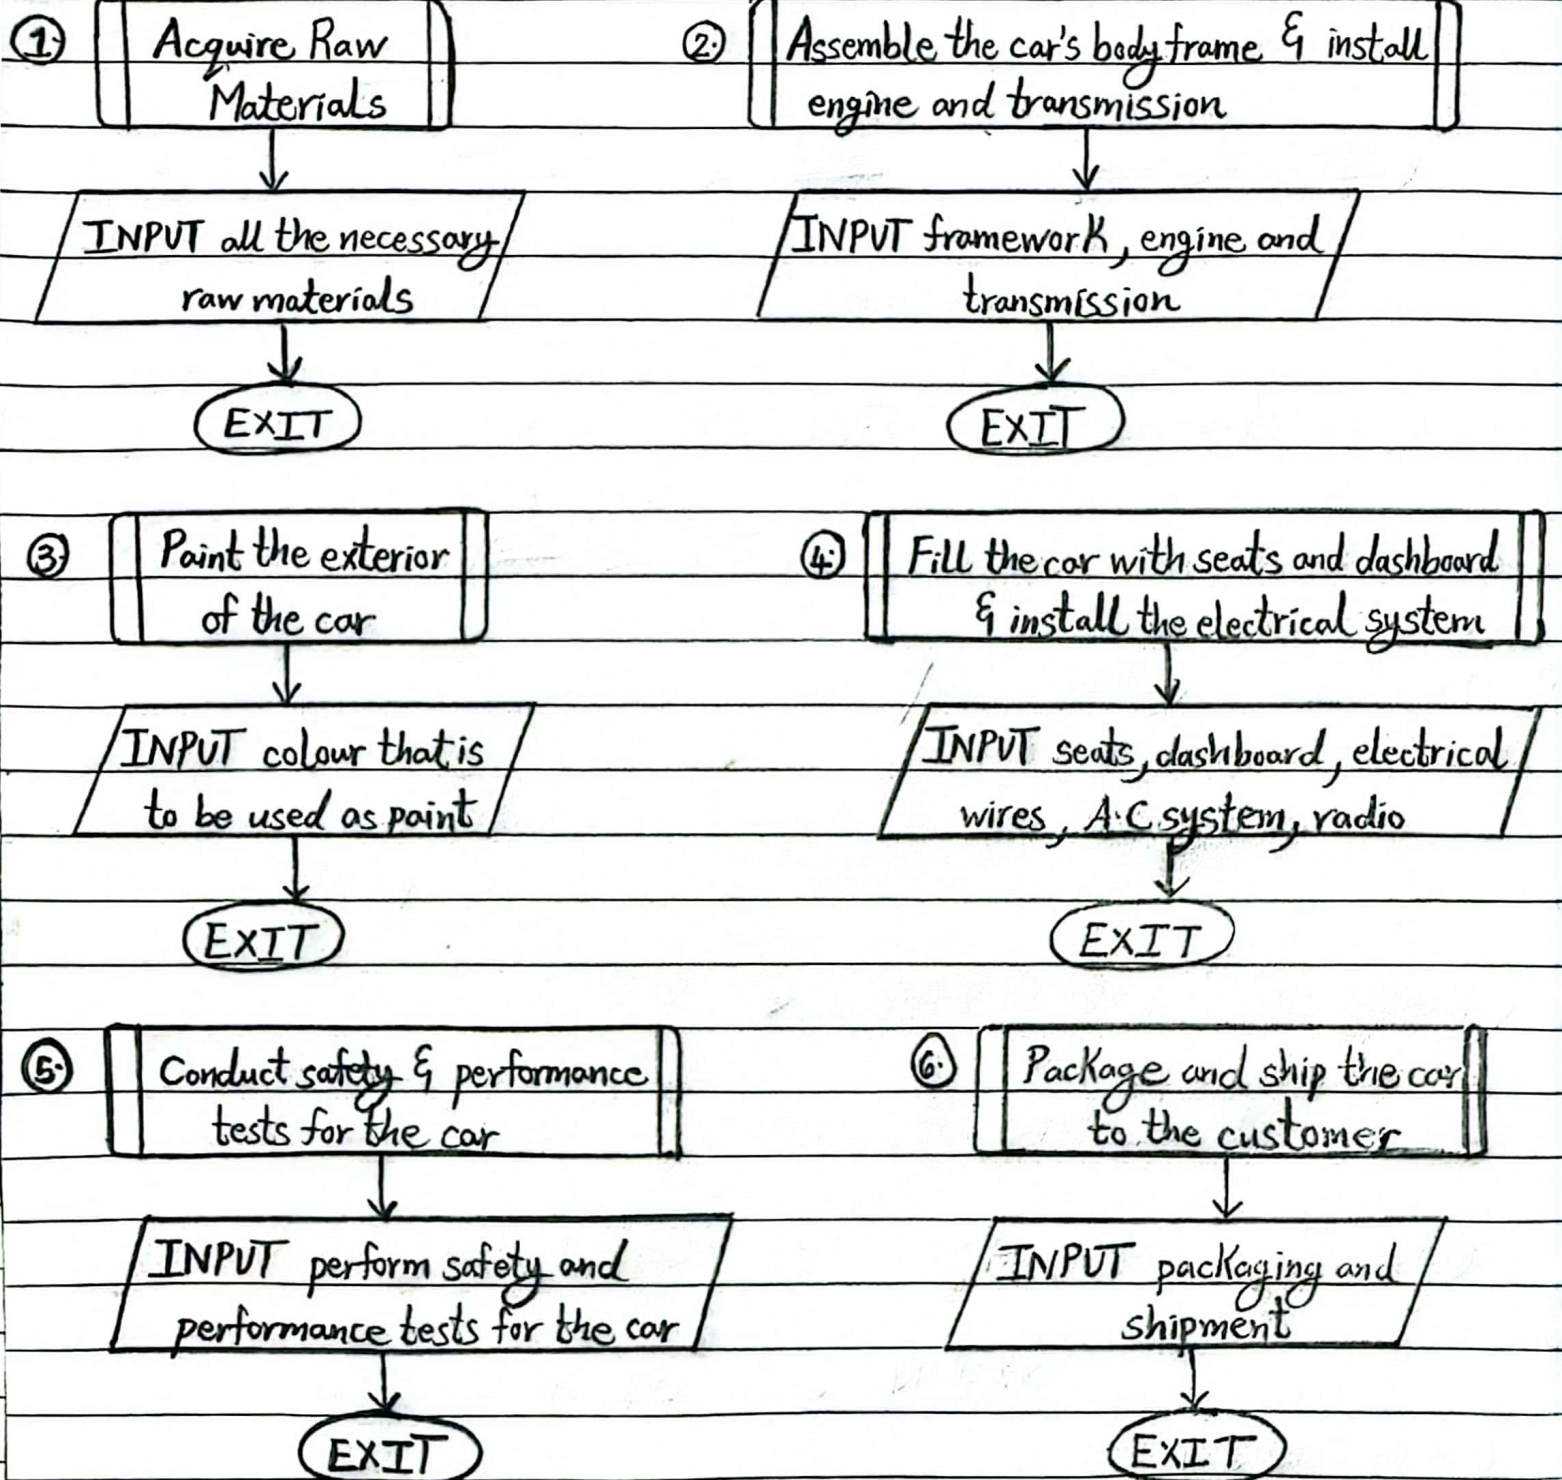 1.
Acquire Raw
Materials
INPUT all the necessary
raw materials
EXIT
2.
Assemble the car's body frame & install
engine and transmission
INPUT framework, engine and
transmission
EXIT
3.
Paint the exterior
of the car
INPUT colour that is
to be used as paint
EXIT
4.
Fill the car with seats and dashboard
& install the electrical system
INPUT seats, dashboard, electrical
wires, A.C system, radio
EXIT
5.
Conduct safety & performance
tests for the car
INPUT perform safety and
performance tests for the car
EXIT
6.
Package and ship the car
to the customer
INPUT packaging and
shipment
EXIT